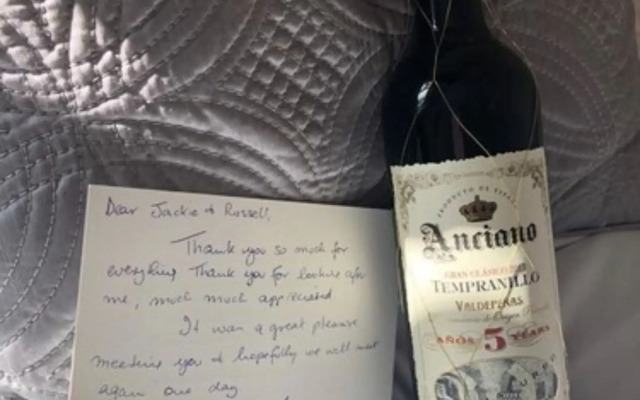 Dear Jackie & Russell,
Thank you so much for
everything Thank you for looking after
me, much much appreciated
It was a great pleasure
meeting you & hopefully we will meet
again one day
PRODUCTO DE
Anciano
GRAN CLÁSICO
TEMPRANILLO
VALDEPEÑAS
AÑOS 5 YEARS